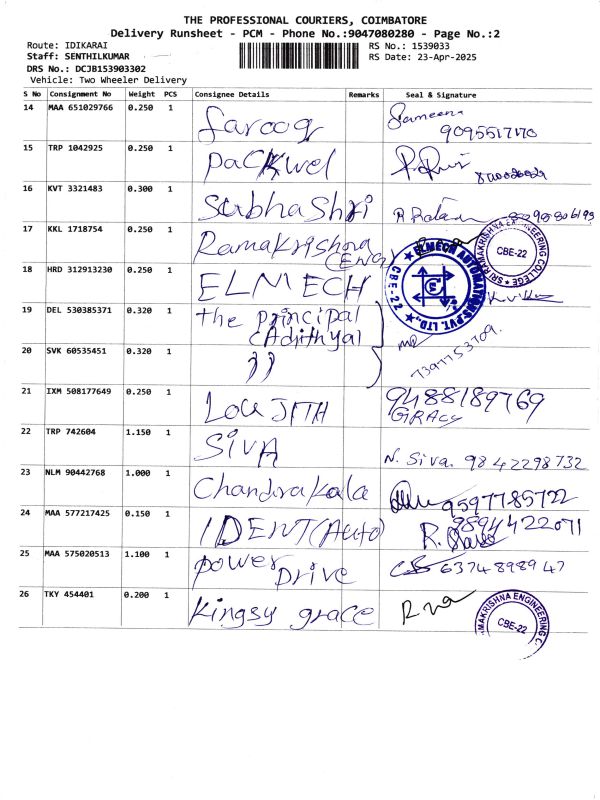 THE PROFESSIONAL COURIERS, COIMBATORE
Delivery Runsheet - PCM - Phone No.:9047080280 - Page No.:2
Route: IDIKARAI
RS No.: 1539033
Staff: SENTHILKUMAR
RS Date: 23-Apr-2025
DRS No.: DCJB153903302
Vehicle: Two Wheeler Delivery
S No Consignment No Weight PCS Consignee Details Remarks Seal & Signature
14 MAA 651029766 0.250 1 farooq Sameena
15 TRP 1042925 0.250 1 Packwel
16 KVT 3321483 0.300 1 SubhaShri
17 KKL 1718754 0.250 1 Ramakrishna
SRI RAMAKRISHNA ENGINEERING COLLEGE
CBE-22
18 HRD 312913230 0.250 1 ELMECH
ELMECH AUTOMATIONS PVT. LTD.,
CBE-22
19 DEL 530385371 0.320 1 the principal
(Adithya)
7397753709.
20 SVK 60535451 0.320 1 ))
21 IXM 508177649 0.250 1 LOGU JITH 9488189769
GRACY
22 TRP 742604 1.150 1 SIVA N. Siva. 9842298732
23 NLM 90442768 1.000 1 Chandrakala 9597785722
24 MAA 577217425 0.150 1 IDENT(Auto) 9894422071
25 MAA 575020513 1.100 1 power Drive 6374898947
26 TKY 454401 0.200 1 kingsy grace
CBE-22